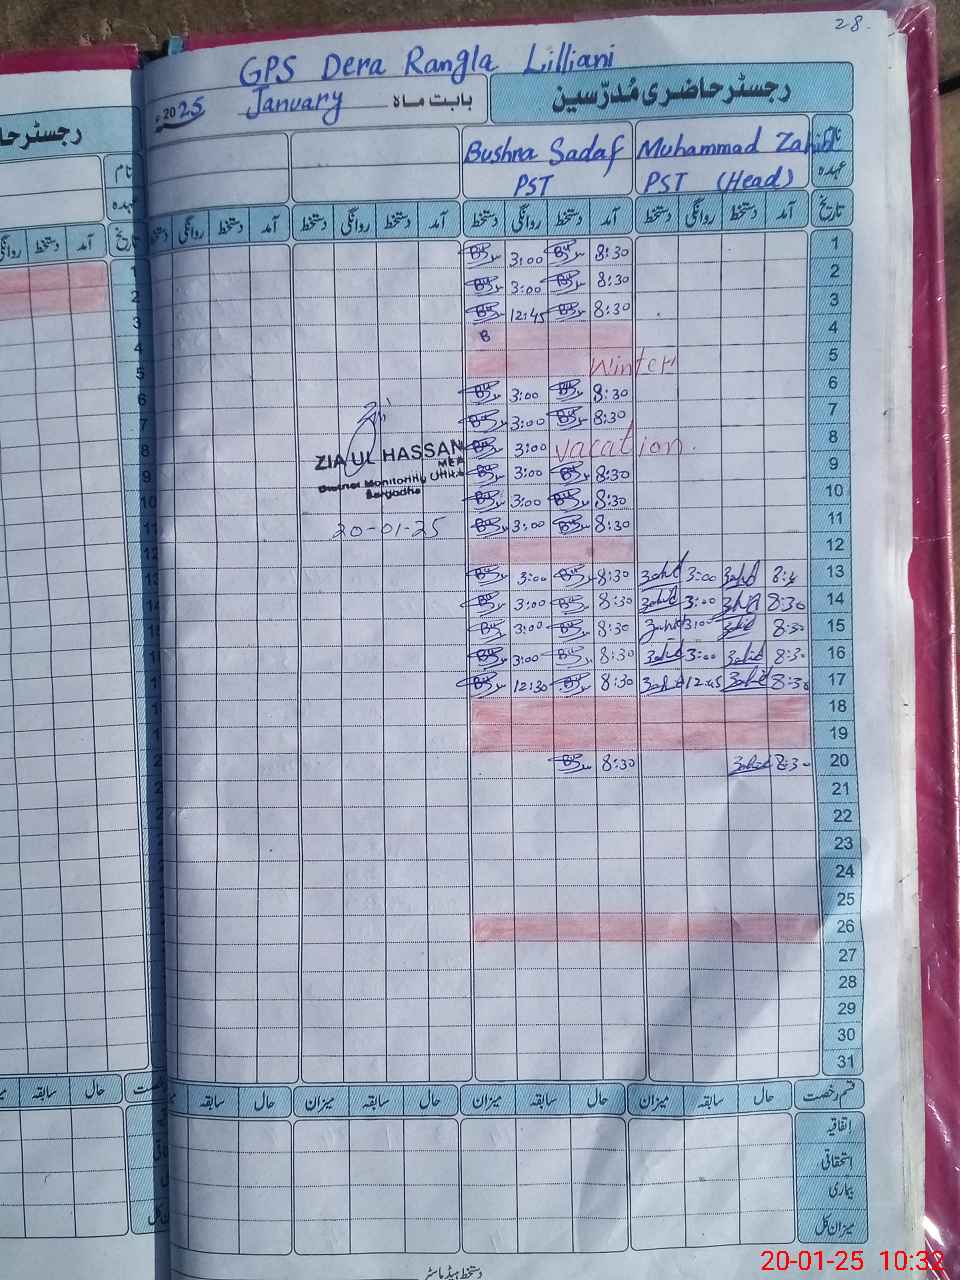 28.
GPS Dera Rangla Lilliani
رجسٹر حاضری مُدرّسین
بابت ماہ January 2025ء
نام Muhammad Zahid Bushra Sadaf
عہدہ PST (Head) PST
تاریخ آمد دستخط روانگی دستخط آمد دستخط روانگی دستخط آمد دستخط روانگی دستخط آمد دستخط روانگی دستخط
1 8:30 3:00
2 8:30 3:00
3 8:30 12:45
4
5 Winter
6 8:30 3:00
7 8:30 3:00
8 vacation. 3:00
9 8:30 3:00
10 8:30 3:00
11 8:30 3:00
12
13 Zahid 3:00 Zahid 8:30 3:00
14 8:30 Zahid 3:00 Zahid 8:30 3:00
15 8:30 Zahid 3:00 Zahid 8:30 3:00
16 8:30 Zahid 3:00 Zahid 8:30 3:00
17 8:30 Zahid 12:45 Zahid 8:30 12:30
18
19
20 8:30 Zahid 8:30
21
22
23
24
25
26
27
28
29
30
31
ZIA UL HASSAN
MEA
District Monitoring Officer
Sargodha
20-01-25
قسم رخصت حال سابقہ میزان حال سابقہ میزان حال سابقہ میزان حال سابقہ
اتفاقیہ
استحقاقی
بیماری
میزان کل
دستخط ہیڈ ماسٹر
رجسٹر حا
نام
عہدہ
تاریخ آمد دستخط روانگی
1
2
3
4
5
6
7
8
9
10
11
12
13
14
حال سابقہ
20-01-25 10:32